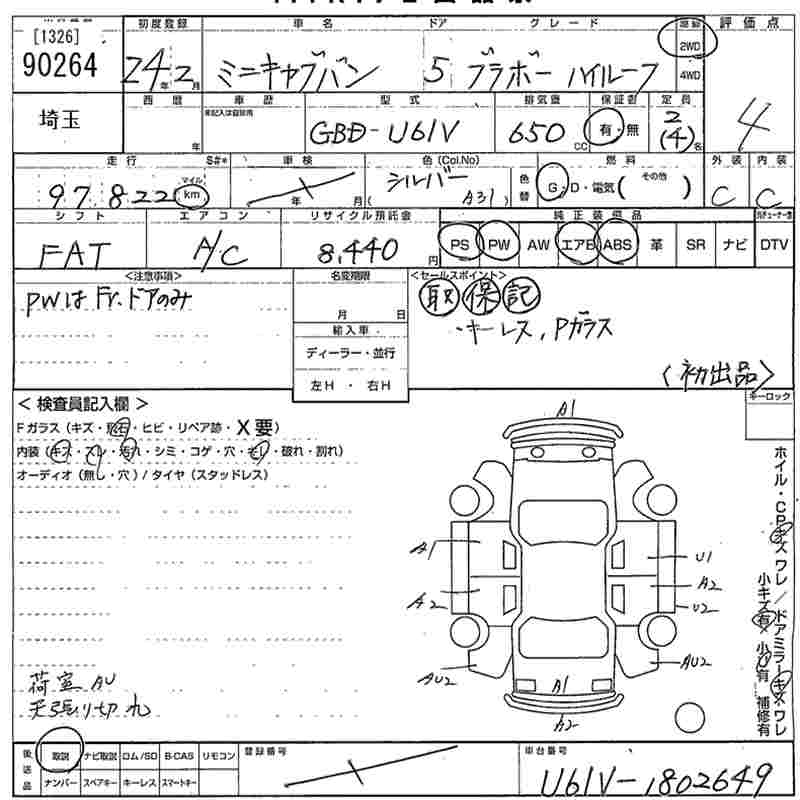 [1326]
90264
初度登録 車名 ドア グレード 駆動 評価点
24年2月 ミニキャブバン 5 ブラボー ハイルーフ 2WD 4WD 4
埼玉
西暦 車歴 型式 排気量 保証書 定員
年 未記入は自家用 GBD-U61V 650CC 有・無 2(4)名
走行 S#* 車検 色(Col.No) 燃料 外装 内装
97,822 マイル km 年 月 シルバー ( A31 ) 色替 G・D・電気( その他 ) C C
シフト エアコン リサイクル預託金 純正装備品
FAT A/C 8,440円 PS PW AW エアB ABS 革 SR ナビ DTV
<注意事項> 名変期限 <セールスポイント>
PWはFr.ドアのみ 月 日 取 保 記
輸入車 ・キーレス, Pガラス
ディーラー・並行
左H ・ 右H <初出品>
キーロック
< 検査員記入欄 >
Fガラス(キズ・飛石・ヒビ・リペア跡・X要)
内装(キズ・スレ・汚れ・シミ・コゲ・穴・モレ・破れ・割れ)
オーディオ(無し・穴)/タイヤ(スタッドレス)
A1
A1 U1
A2 A2
U2
AU2 AU2
A1
A2
ホイル・CPキズ ワレ / ドアミラーキズ ワレ
小キズ有 小U有 補修有
荷室AU
天張り切 九
後送品 取説 ナビ取説 ロム/SD B-CAS リモコン 登録番号 車台番号
ナンバー スペアキー キーレス スマートキー U61V-1802649